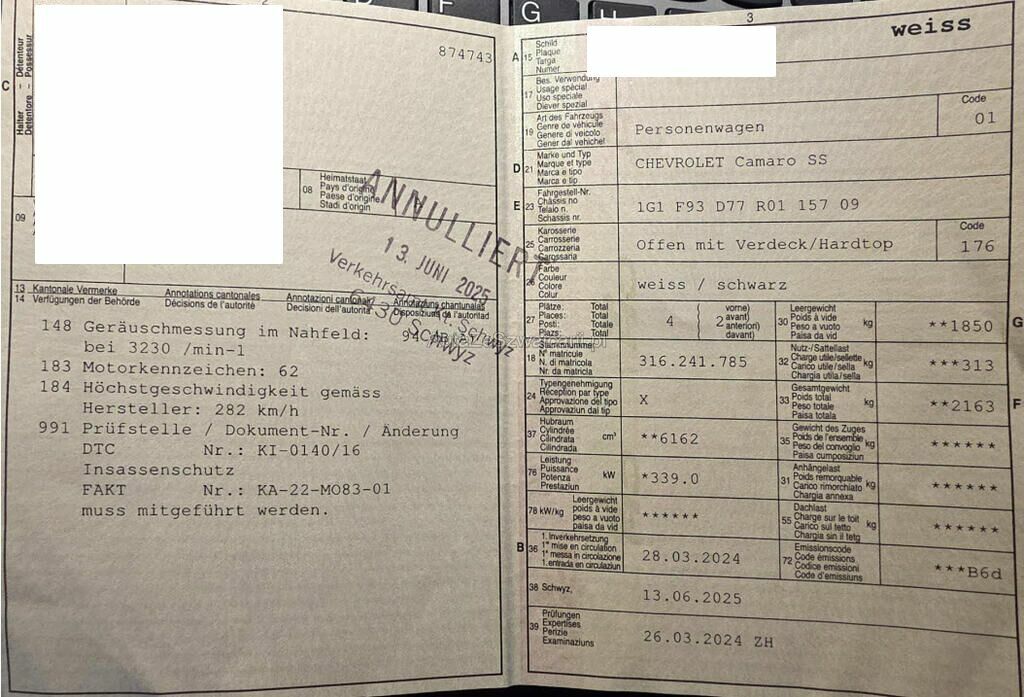 G
2
3
874743
weiss
C
Halter - Détenteur
Detentore - Possessur
08
Heimatstaat
Pays d'origine
Paese d'origine
Stadi d'origin
09
ANNULLIERT
13. JUNI 2025
Schwyz
6430 Schwyz
13 Kantonale Vermerke
14 Verfügungen der Behörde
Annotations cantonales
Décisions de l'autorité
Annotazioni cantonali
Decisioni dell'autorità
Annotaziuns chantunalas
Disposiziuns de l'autoritad
148 Geräuschmessung im Nahfeld: 94
bei 3230 /min-1
183 Motorkennzeichen: 62
184 Höchstgeschwindigkeit gemäss
Hersteller: 282 km/h
991 Prüfstelle / Dokument-Nr. / Änderung
DTC Nr.: KI-0140/16
Insassenschutz
FAKT Nr.: KA-22-MO83-01
muss mitgeführt werden.
A 15
Schild
Plaque
Targa
Numer
17
Bes. Verwendung
Usage spécial
Uso speciale
Diever spezial
19
Art des Fahrzeugs
Genre de véhicule
Genere di veicolo
Gener dal vehichel
Personenwagen
Code
01
D 21
Marke und Typ
Marque et type
Marca e tipo
Marca e tip
CHEVROLET Camaro SS
E 23
Fahrgestell-Nr.
Châssis no
Telaio n.
Schassis nr.
1G1 F93 D77 R01 157 09
25
Karosserie
Carrosserie
Carrozzeria
Carossaria
Offen mit Verdeck/Hardtop
Code
176
26
Farbe
Couleur
Colore
Colur
weiss / schwarz
27
Plätze: Total
Places: Total
Posti: Totale
Plazs: Total
4 ( 2
vorne)
avant)
anteriori)
davant)
30
Leergewicht
Poids à vide
Peso a vuoto
Paisa da vid
kg
**1850
G
18
Stammnummer
N° matricule
N. di matricola
Nr. da matricla
316.241.785
32
Nutz-/Sattellast
Charge utile/sellette
Carico utile/sella
Chargia utila/sella
kg
***313
24
Typengenehmigung
Réception par type
Approvazione del tipo
Approvaziun dal tip
X
33
Gesamtgewicht
Poids total
Peso totale
Paisa totala
kg
**2163
F
37
Hubraum
Cylindrée
Cilindrata
Cilindrada
cm³
**6162
35
Gewicht des Zuges
Poids de l'ensemble
Peso del convoglio
Paisa cumposiziun
kg
******
76
Leistung
Puissance
Potenza
Prestaziun
kW
*339.0
31
Anhängelast
Poids remorquable
Carico rimorchiato
Chargia annexa
kg
******
78 kW/kg
Leergewicht
poids à vide
peso a vuoto
paisa da vid
******
55
Dachlast
Charge sur le toit
Carico sul tetto
Chargia sin il tetg
kg
******
B 36
1. Inverkehrsetzung
1re mise en circulation
1a messa in circolazione
1. entrada en circulaziun
28.03.2024
72
Emissionscode
Code émissions
Codice emissioni
Code d'emissiuns
***B6d
38 Schwyz,
13.06.2025
39
Prüfungen
Expertises
Perizie
Examinaziuns
26.03.2024 ZH